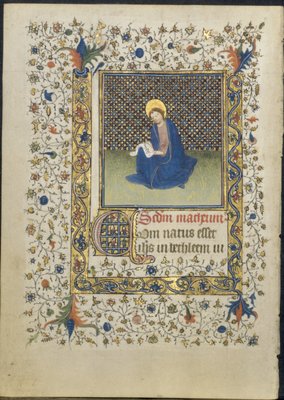 Secdm matheum
Cum natus esset
ihs in bethleem iu